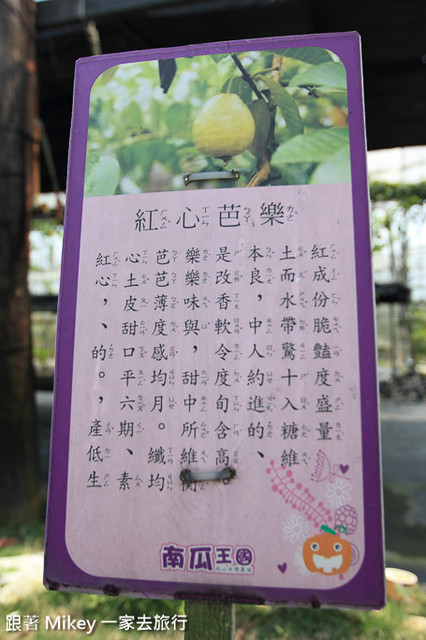 紅心芭樂
紅心芭樂是本土紅
心土芭樂改良而成
，皮薄味香，水份
、甜度與軟中帶脆
的口感，令人驚豔
。平均甜度約十度
，六月中旬進入盛
產期。所含的糖量
低、纖維高、維
生素均衡
南瓜王國
跟著 Mikey 一家去旅行